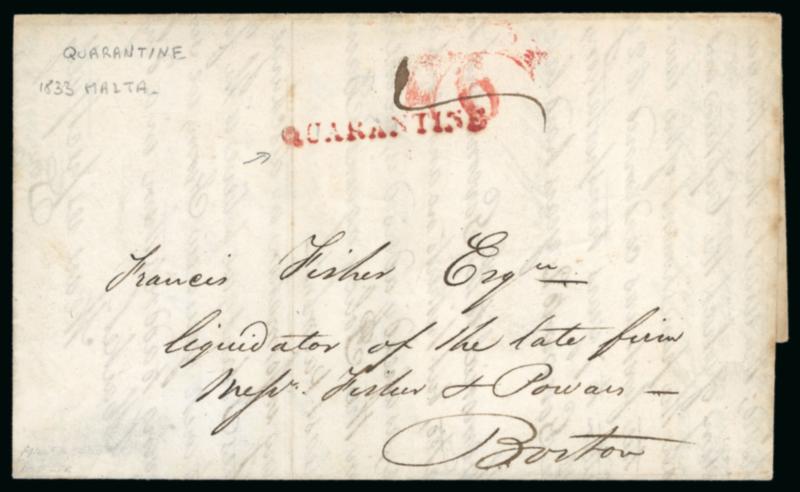 QUARANTINE
1833 MALTA
QUARANTINE
Francis Fisher Esqr
liquidator of the late firm
Messrs. Fisher & Powars
Boston